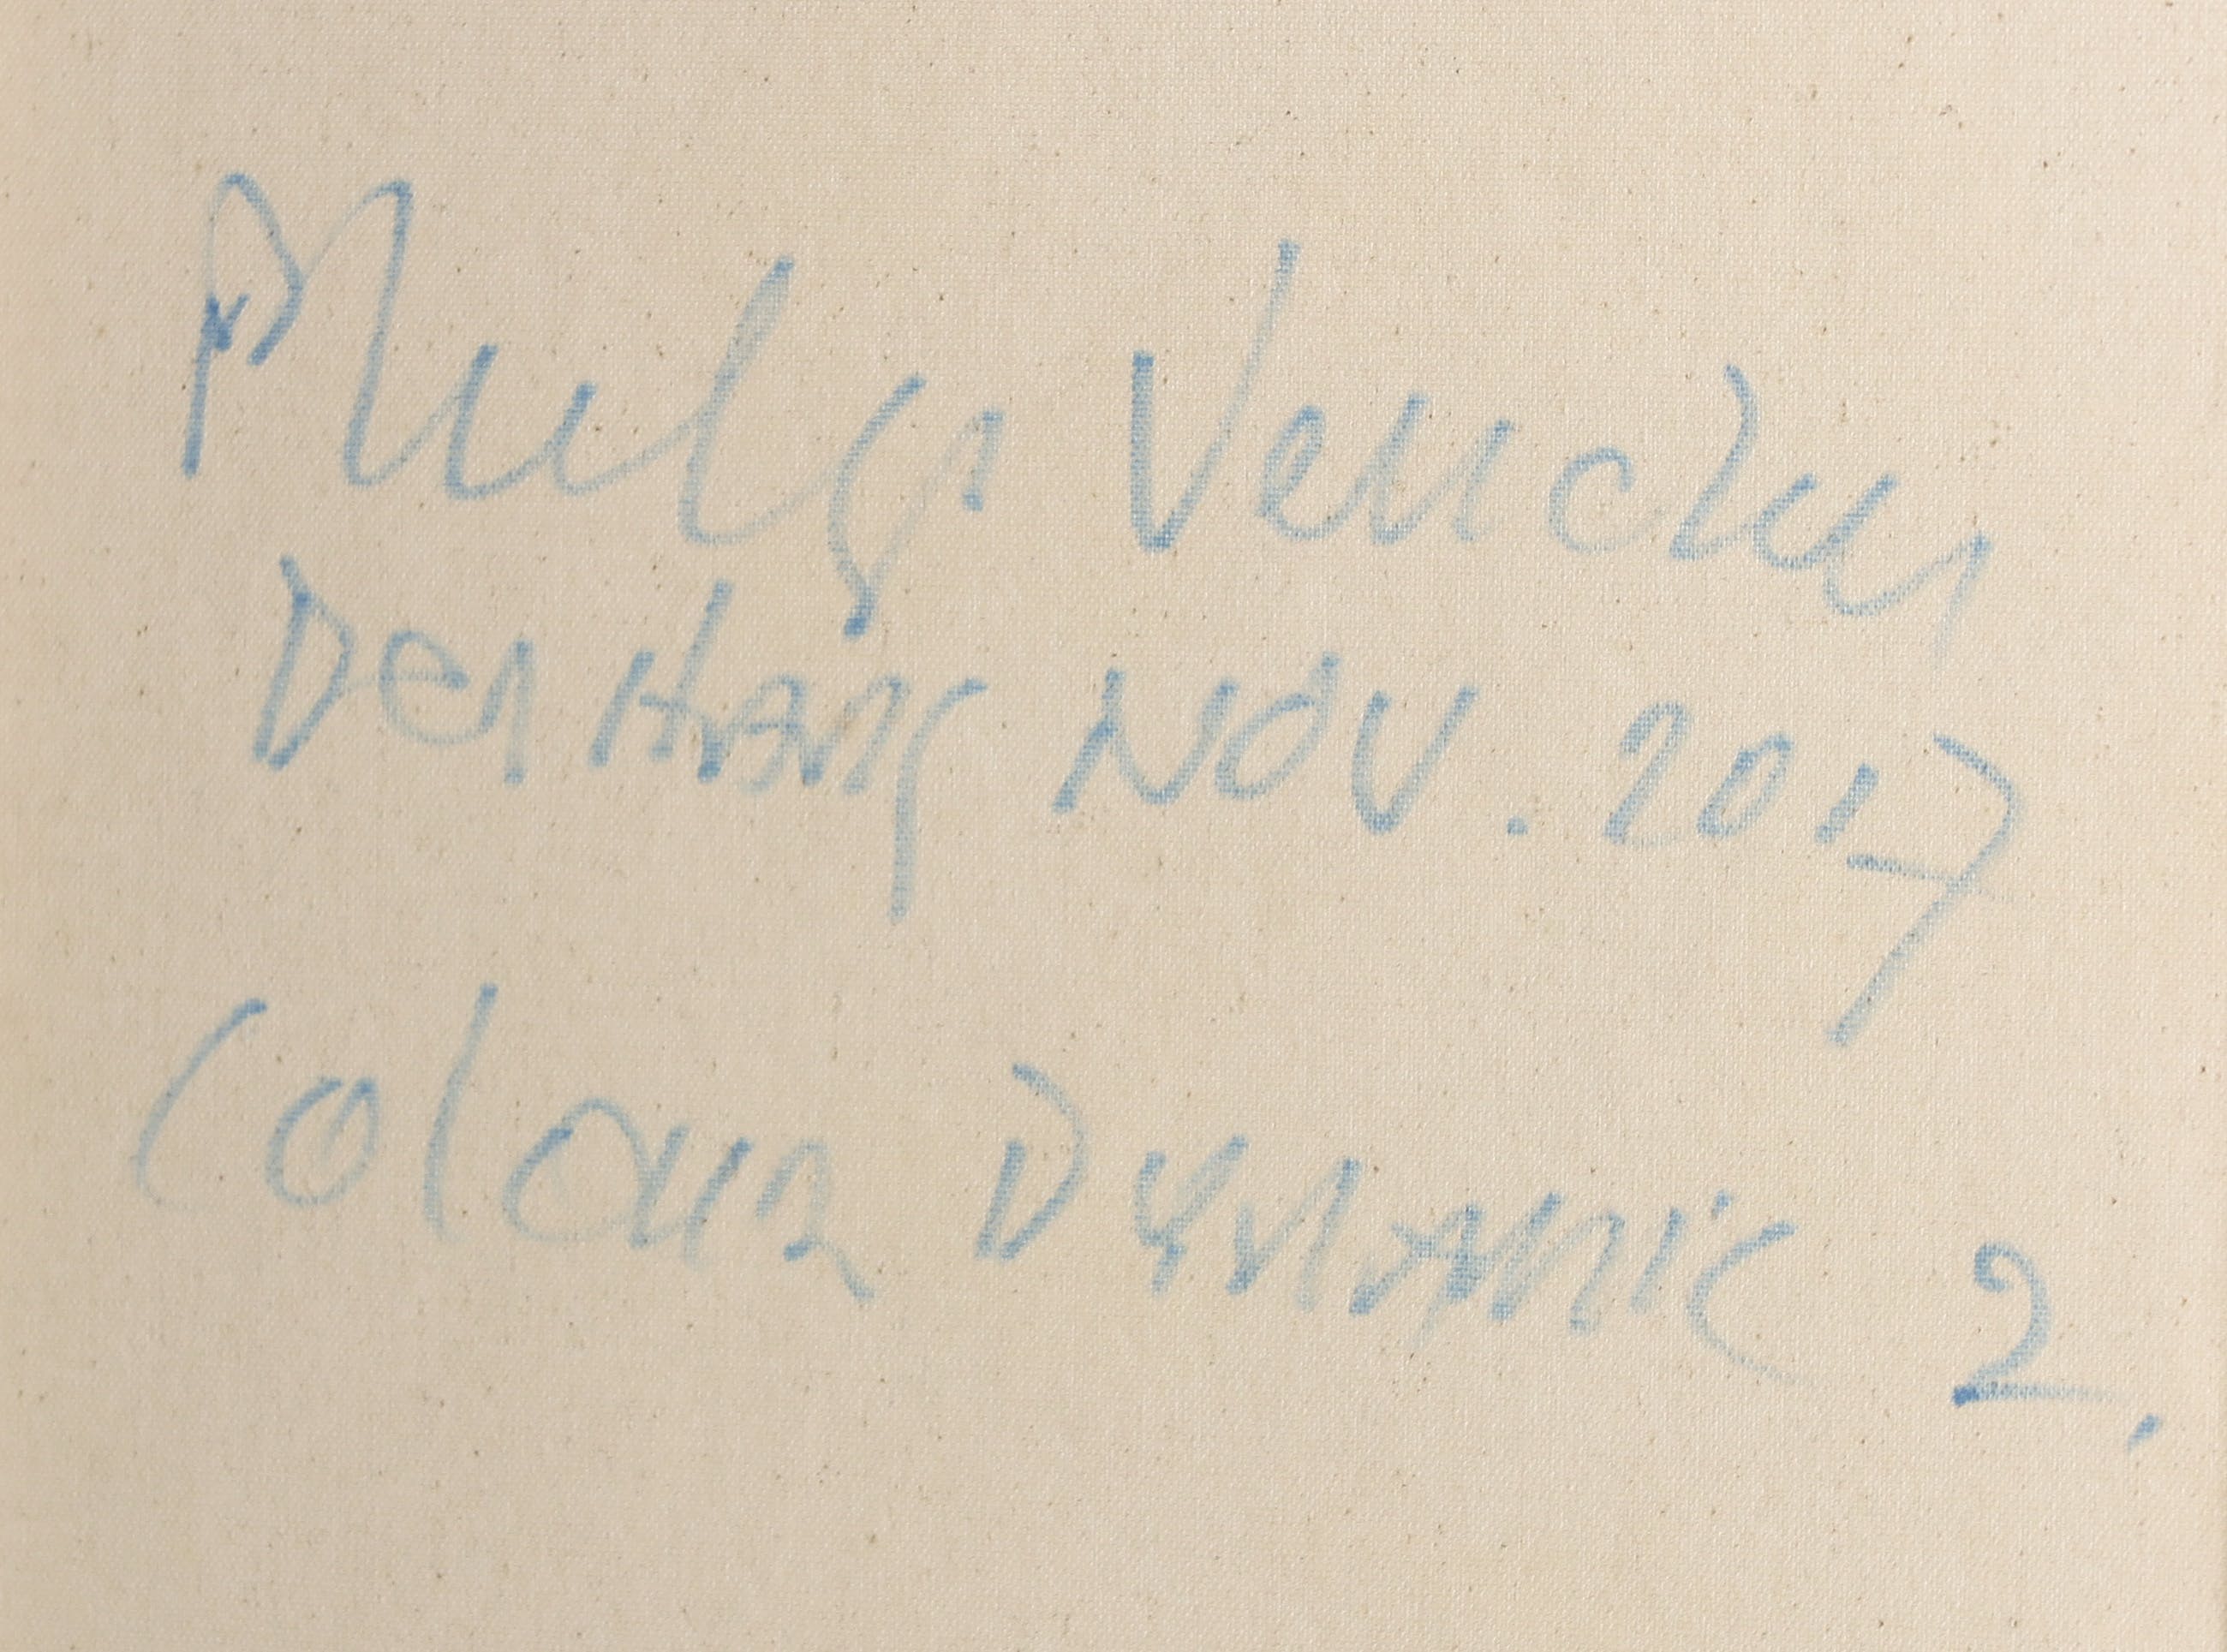 Philip
Den Haag NOV. 2017
Colour DYNAMIC 2.